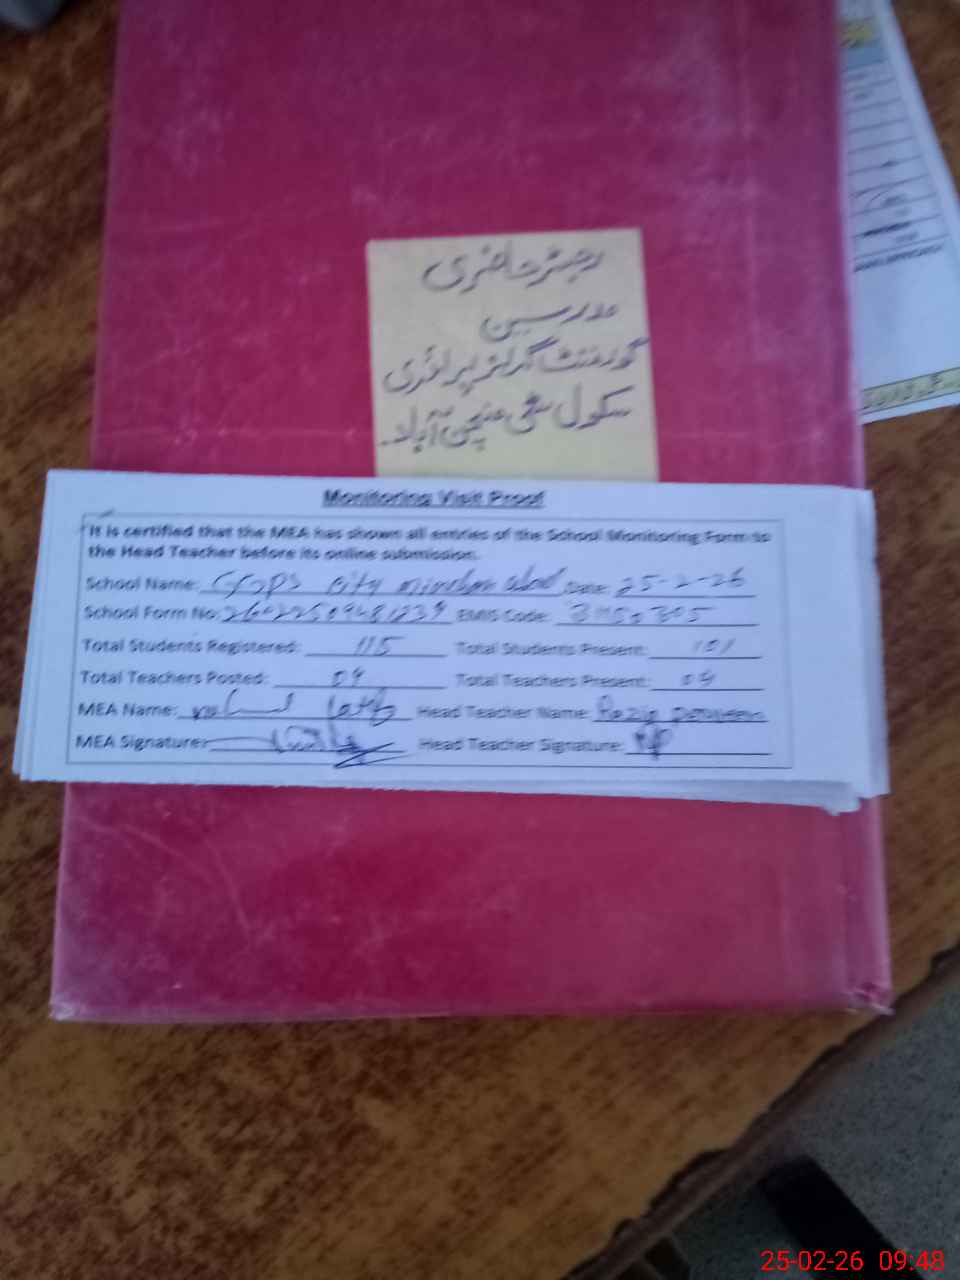 رجسٹر حاضری
مدرسین
گورنمنٹ گرلز پرائمری
سکول سٹی منچن آباد۔
Monitoring Visit Proof
It is certified that the MEA has shown all entries of the School Monitoring Form to
the Head Teacher before its online submission.
School Name: GGPS City minchan abad Date: 25-2-26
School Form No: EMIS Code:
Total Students Registered: 115 Total Students Present: 101
Total Teachers Posted: 04 Total Teachers Present: 04
MEA Name: Head Teacher Name: Razia Parveen
MEA Signature: Head Teacher Signature:
25-02-26 09:48